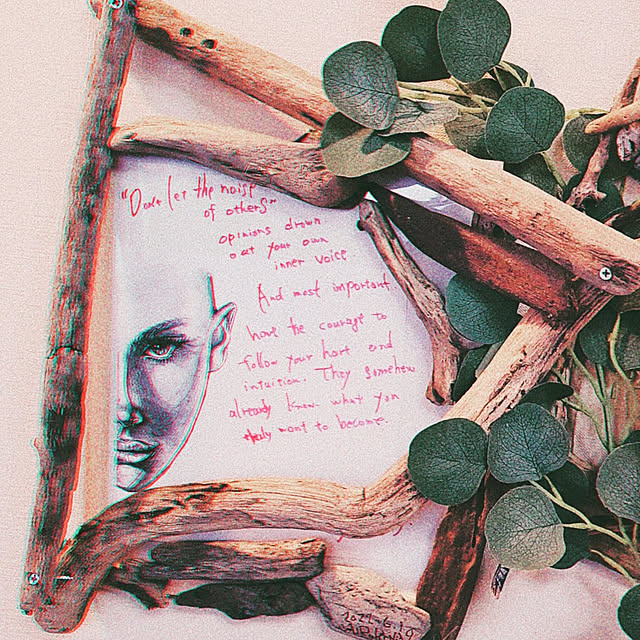 "Don't let the noise
of others~
opinions drown
out your own
inner voice
And most important
have the courage to
follow your hart and
intuition. They somehow
already know what you
want to become.
2022.6.19